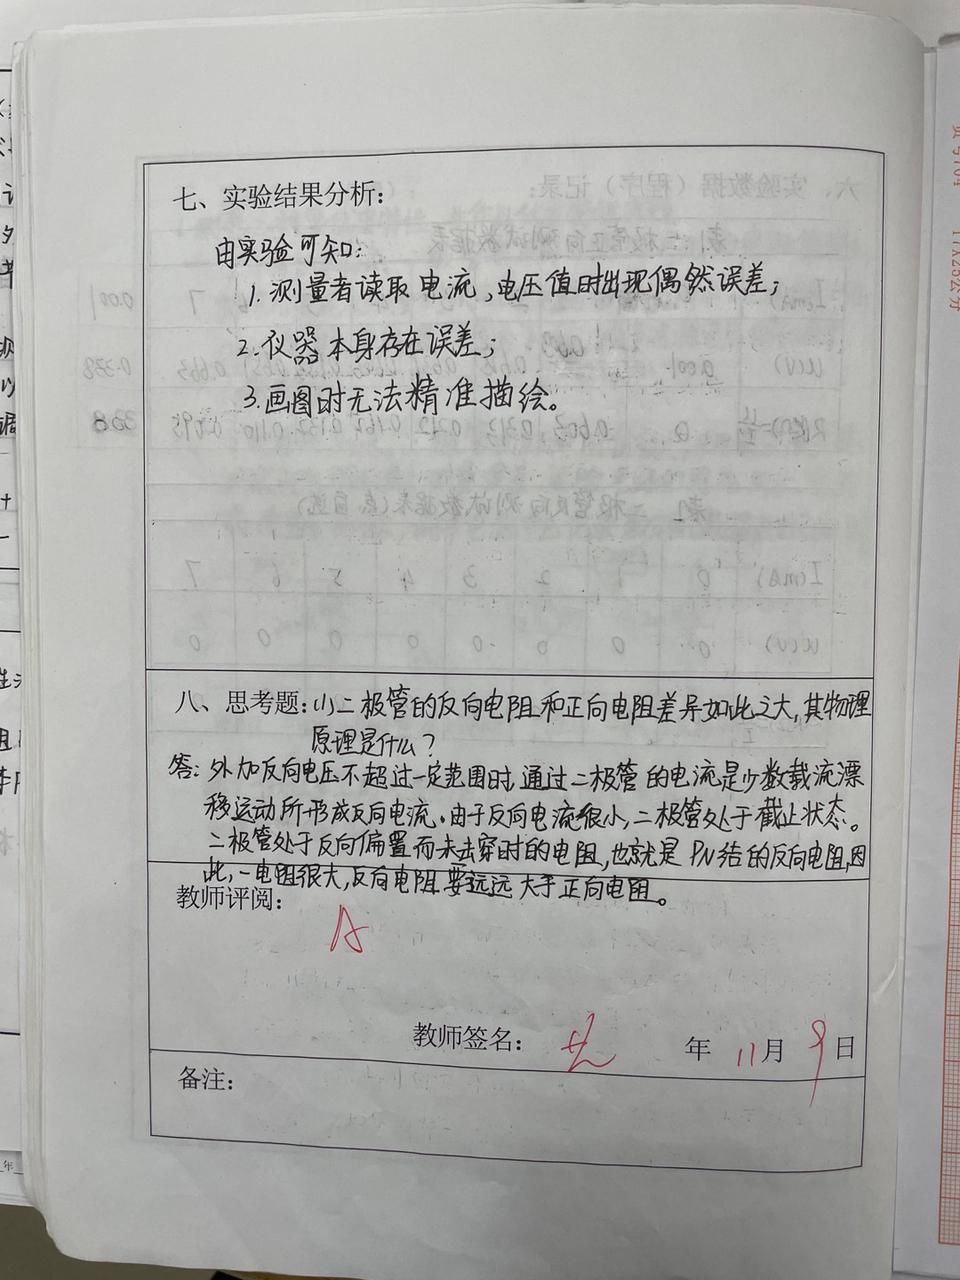 七、实验结果分析:
由实验可知:
1.测量者读取电流,电压值时出现偶然误差;
2.仪器本身存在误差;
3.画图时无法精准描绘。
八、思考题:(1)二极管的反向电阻和正向电阻差异如此之大,其物理
原理是什么?
答:外加反向电压不超过一定范围时,通过二极管的电流是少数载流漂
移运动所形成反向电流。由于反向电流很小,二极管处于截止状态。
二极管处于反向偏置而未击穿时的电阻,也就是PN结的反向电阻,因
此,一电阻很大,反向电阻要远远大于正向电阻。
教师评阅:
A
教师签名: 年 11月 9日
备注: